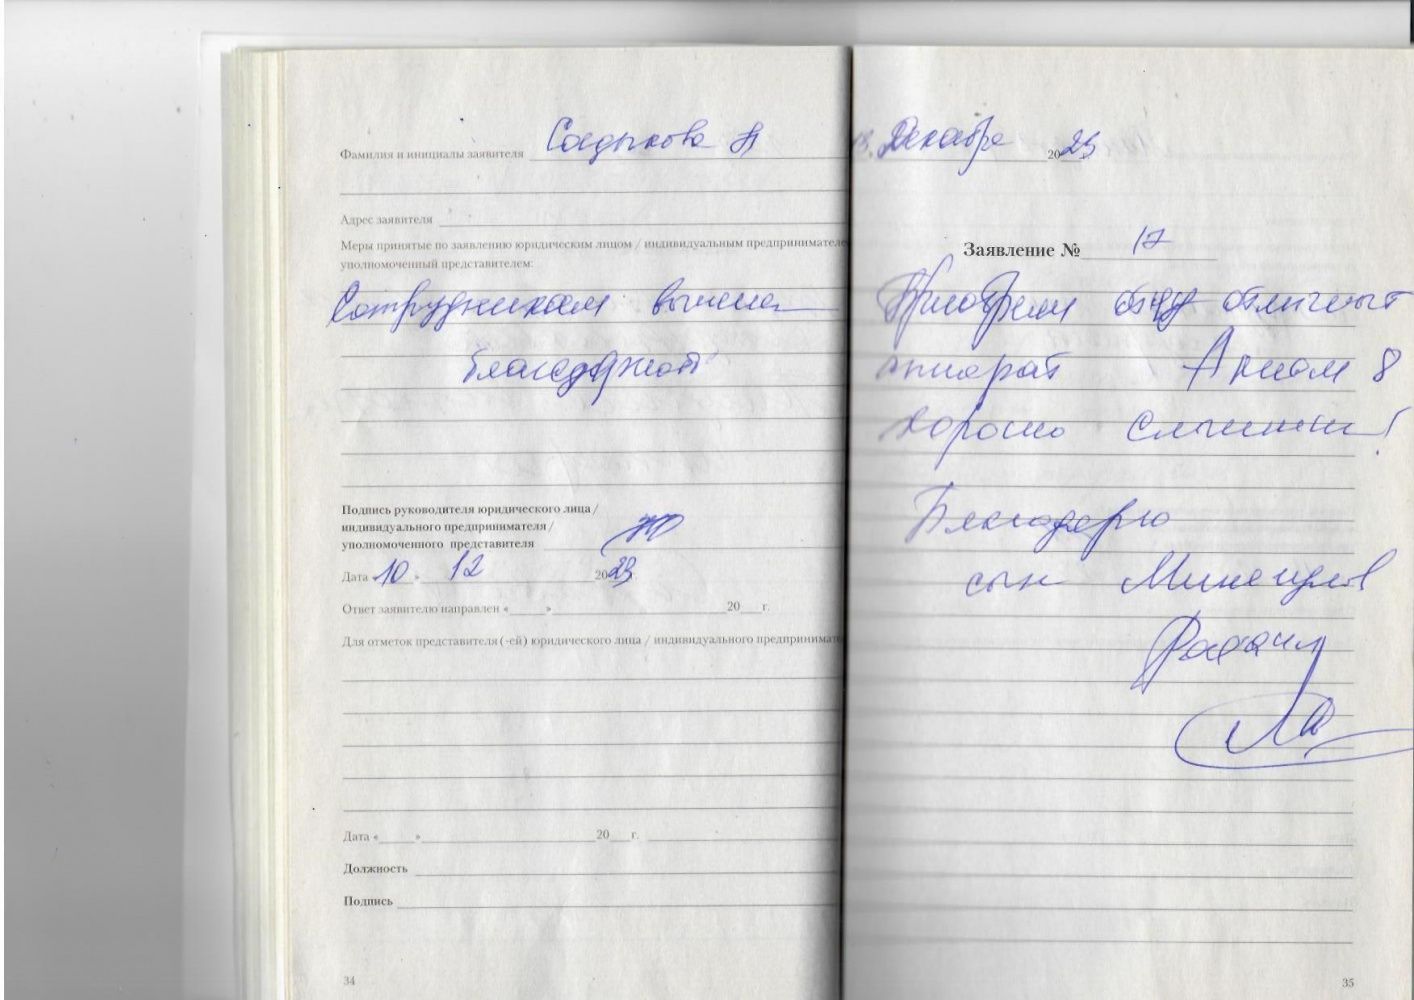 Фамилия и инициалы заявителя Садыкова Н
Адрес заявителя
Меры принятые по заявлению юридическим лицом / индивидуальным предпринимателе
уполномоченный представителем:
Сотрудникам вынесена
благодарность
Подпись руководителя юридического лица /
индивидуального предпринимателя /
уполномоченного представителя
Дата 10 » 12 2023
Ответ заявителю направлен «____» ____ 20__ г.
Для отметок представителя (-ей) юридического лица / индивидуального предпринимат
Дата «____» ____ 20__ г.
Должность
Подпись
34
Декабря 2023
Заявление № 17
Приобрели отцу отличный
аппарат 8
Хорошо слышит!
Благодарю
сын
35